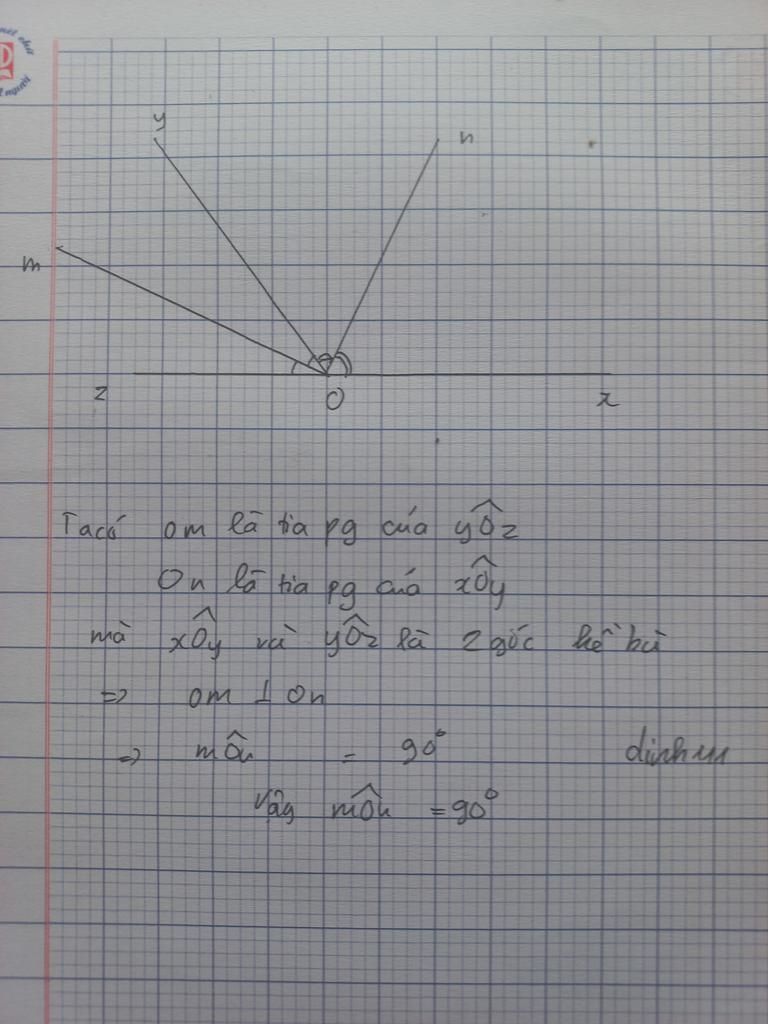 y
n
m
z
O
x
Ta có om là tia pg của yÔz
On là tia pg của xÔy
mà xÔy và yÔz là 2 góc kề bù
=> om ⊥ on
=> mÔn = 90°
Vậy mÔn = 90°